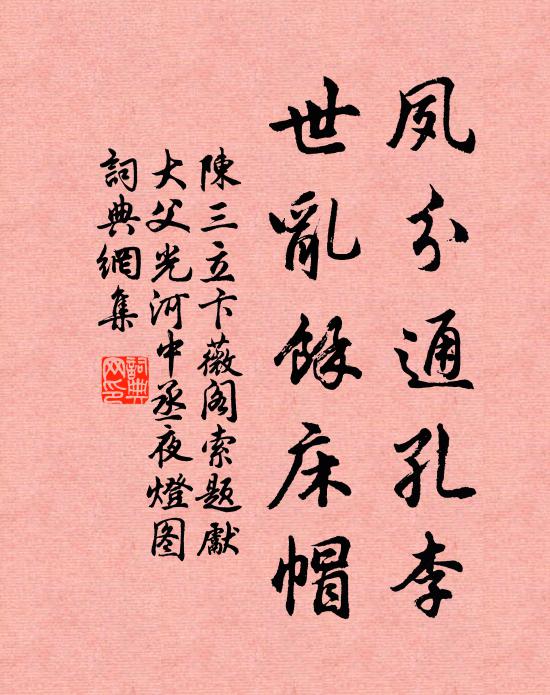 夙分通孔李
世亂餘床帽
陳三立卞薇阁索題獻
大父光河中丞夜燈图
詞典網集
詞典网印